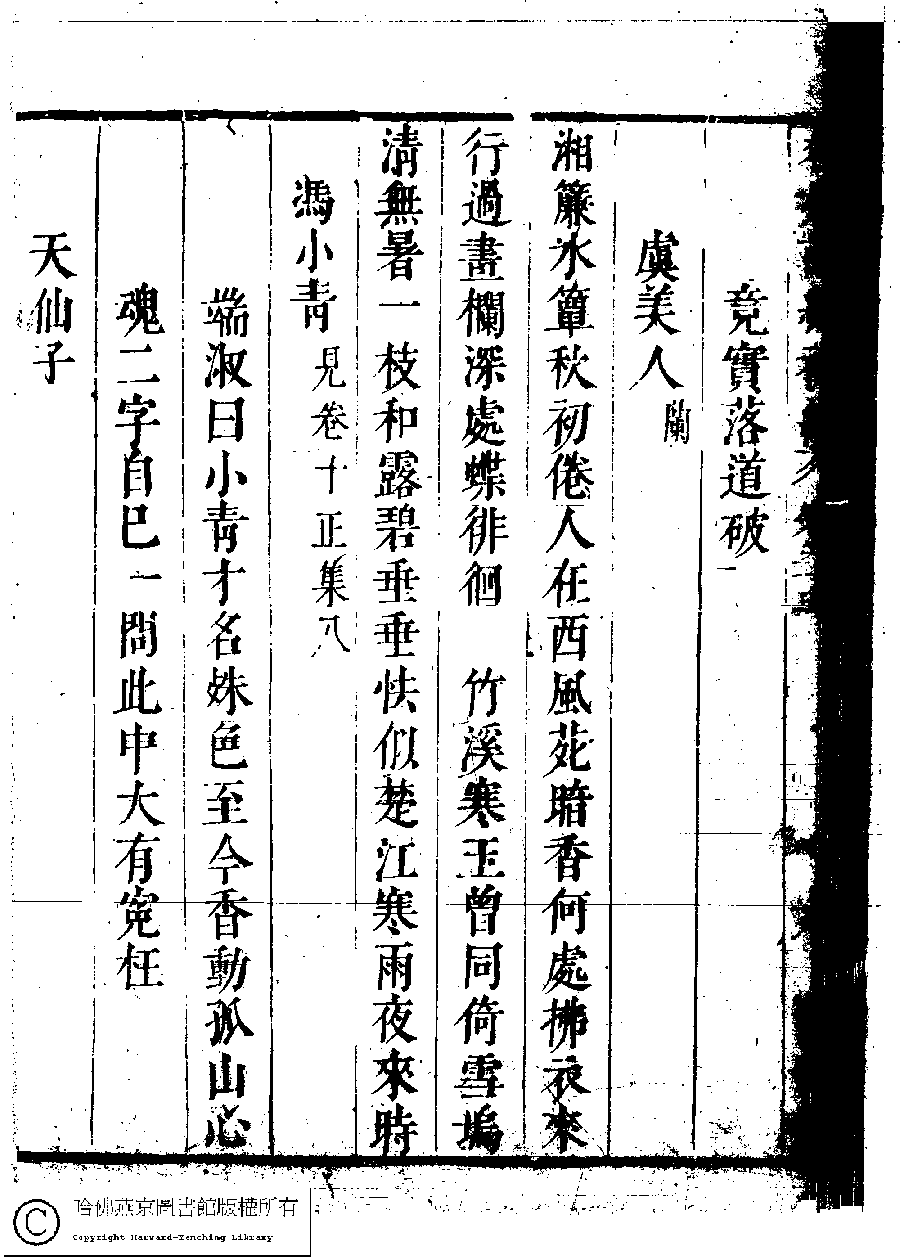 竟實落道破
虞美人 蘭
湘簾水簟秋初倦人在西風苑暗香何處拂衣來
行過畫欄深處蝶徘徊　竹溪寒玉曾同倚雪塢
清無暑一枝和露碧垂垂怏似楚江寒雨夜來時
馮小青 見卷十正集八
端淑曰小青才名姝色至今香動孤山心
魂二字自巳一問此中大有寃枉
天仙子
哈佛燕京圖書館版權所有
Copyright Harvard-Yenching Library